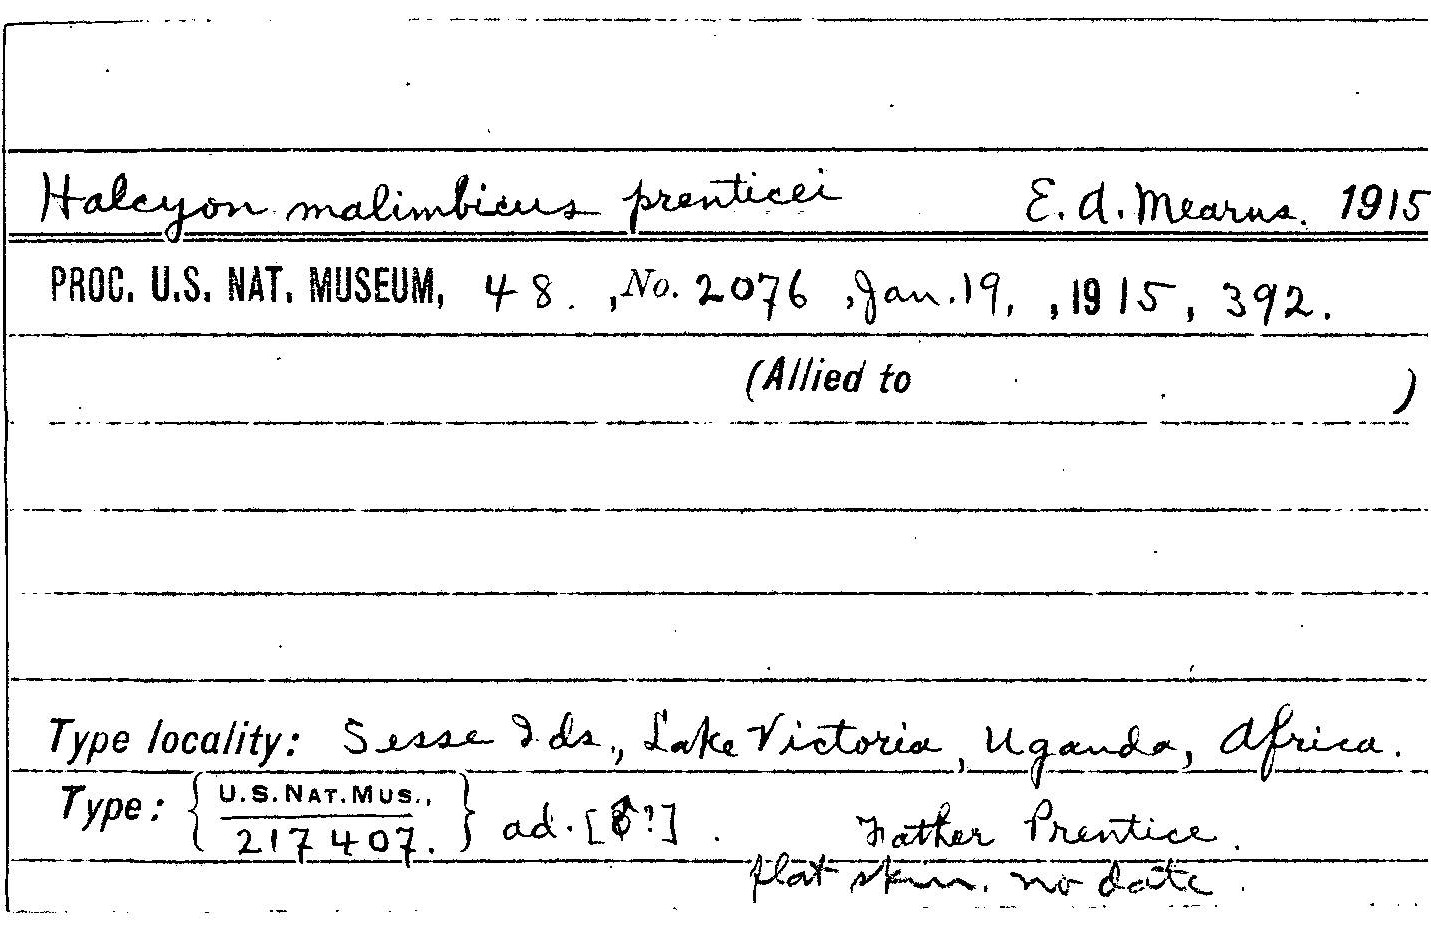 Halcyon malimbicus prenticei E. A. Mearns. 1915
PROC. U.S. NAT. MUSEUM, 48. , No. 2076 , Jan. 19, , 1915, 392.
(Allied to )
Type locality: Sesse Ids., Lake Victoria, Uganda, Africa.
Type: { U.S. NAT. MUS., } ad. [♂?]. Father Prentice.
217407.
flat skin. no date.